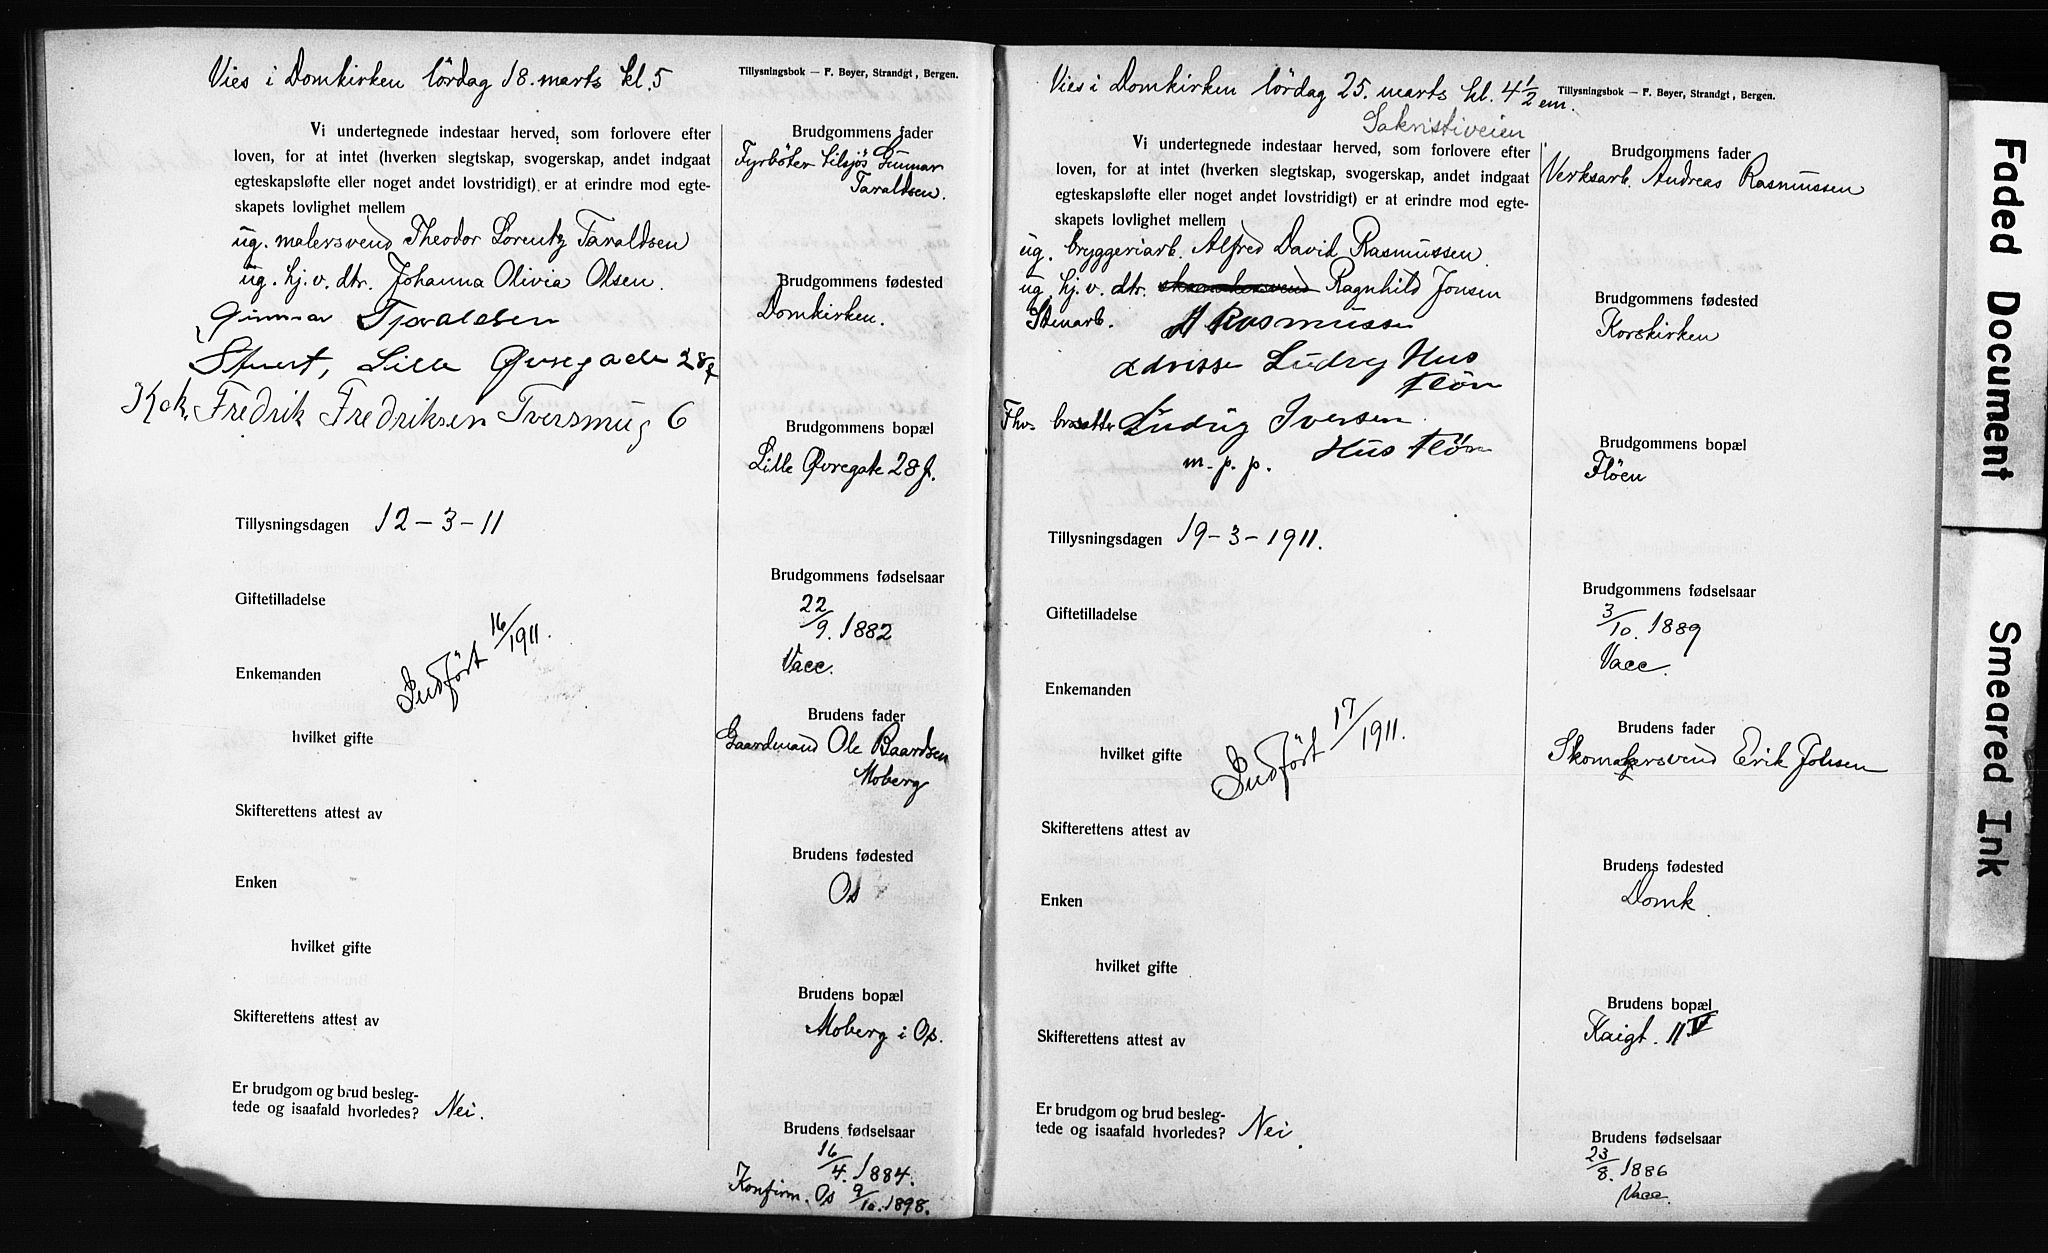 Vies i Domkirken lördag 18. marts kl. 5
Tillysningsbok — F. Bøyer, Strandgt, Bergen.
Vi undertegnede indestaar herved, som forlovere efter
loven, for at intet (hverken slegtskap, svogerskap, andet indgaat
egteskapsløfte eller noget andet lovstridigt) er at erindre mod egte-
skapets lovlighet mellem
ug. malersvend Theodor Lorentz Taraldsen
ug. hj. v. dtr. Johanna Olivia Olsen.
Gunnar Tjaraldsen
Stuert, Lille Øvregade 28 f
Kok. Fredrik Fredriksen Tversmug 6
Tillysningsdagen 12-3-11
Giftetilladelse
Indført 16/1911.
Enkemanden
hvilket gifte
Skifterettens attest av
Enken
hvilket gifte
Skifterettens attest av
Er brudgom og brud besleg-
tede og isaafald hvorledes? Nei.
Brudgommens fader
Fyrböter tilsjös Gunnar
Taraldsen.
Brudgommens fødested
Domkirken.
Brudgommens bopæl
Lille Øvregate 28 f.
Brudgommens fødselsaar
22/9. 1882
Vacc.
Brudens fader
Gaardmand Ole Baardsen
Moberg
Brudens fødested
Os
Brudens bopæl
Moberg i Os.
Brudens fødselsaar
16/4. 1884.
Konfirm. Os 9/10. 1898.
Vies i Domkirken lördag 25. marts kl. 4 1/2 em.
Tillysningsbok — F. Bøyer, Strandgt, Bergen.
Sakristiveien
Vi undertegnede indestaar herved, som forlovere efter
loven, for at intet (hverken slegtskap, svogerskap, andet indgaat
egteskapsløfte eller noget andet lovstridigt) er at erindre mod egte-
skapets lovlighet mellem
ug. bryggeriarb. Alfred David Rasmussen.
ug. hj. v. dtr. Ragnhild Jonsen
Stenarb. A Rasmussen
adresse Ludvig Hus
Fløn
Ludvig Iversen
m. p. p. Hus Fløn
Tillysningsdagen 19-3-1911.
Giftetilladelse
Enkemanden
Indført 17/1911.
hvilket gifte
Skifterettens attest av
Enken
hvilket gifte
Skifterettens attest av
Er brudgom og brud besleg-
tede og isaafald hvorledes? Nei.
Brudgommens fader
Verksarb. Andreas Rasmussen
Brudgommens fødested
Korskirken
Brudgommens bopæl
Flöen
Brudgommens fødselsaar
3/10. 1889
Vacc.
Brudens fader
Skomakersvend Erik Johsen
Brudens fødested
Domk.
Brudens bopæl
Kaigt. 11 V
Brudens fødselsaar
23/8. 1886
Vacc.
Faded Document
Smeared Ink